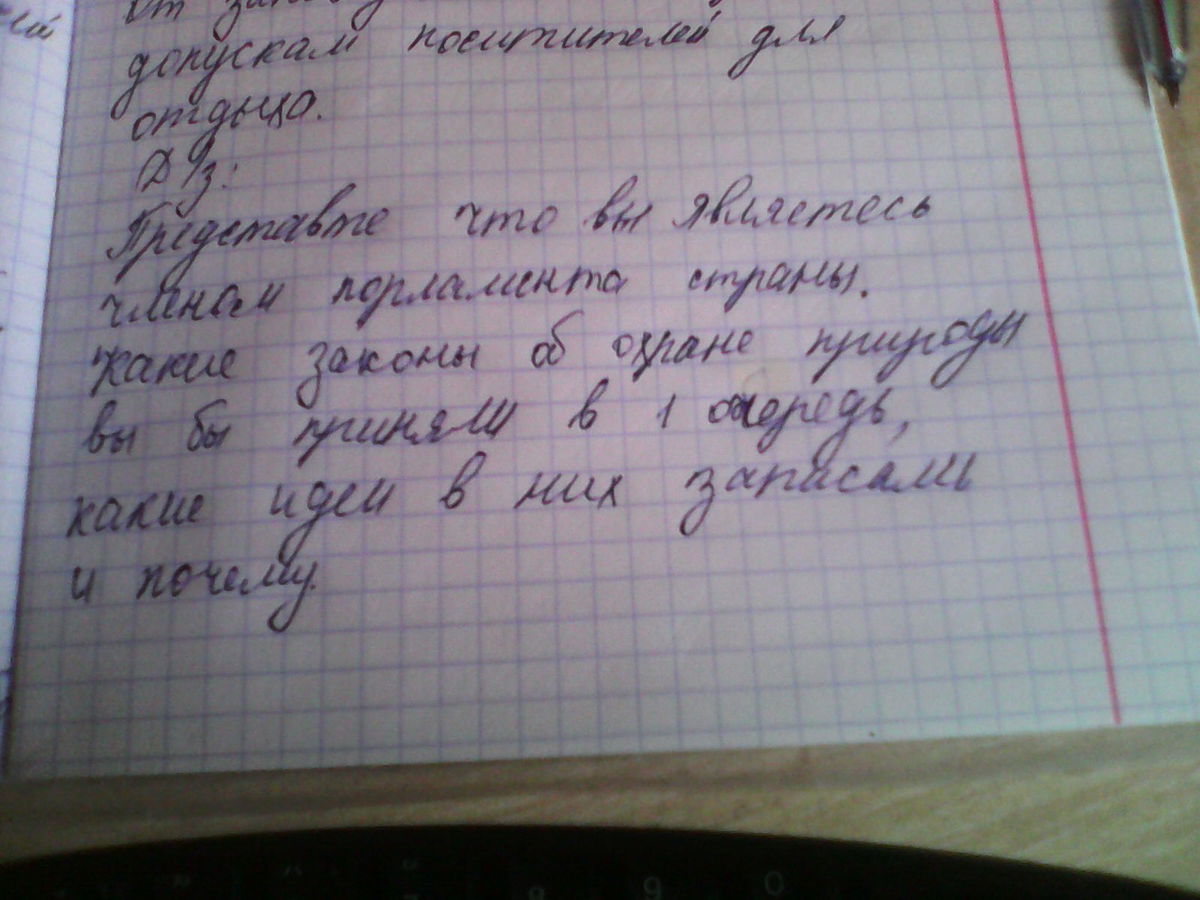 от
допускам поситителей для
отдыха.
Д/з:
Представте что вы являетесь
членом порламента страны.
Какие законы об охране природы
вы бы приняли в 1 очередь,
какие идеи в них записали
и почему.